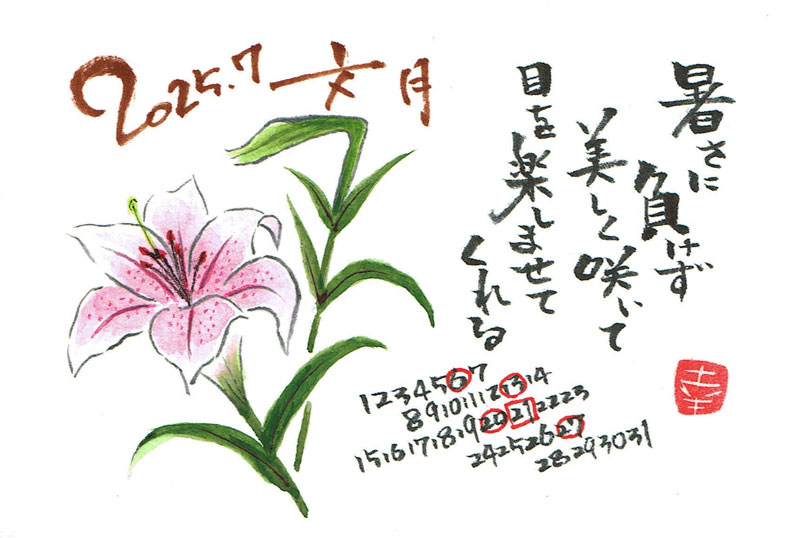 2025.7 文月
暑さに
負けず
美しく咲いて
目を楽しませて
くれる
1 2 3 4 5 6 7
8 9 10 11 12 13 14
15 16 17 18 19 20 21 22 23
24 25 26 27
28 29 30 31
幸